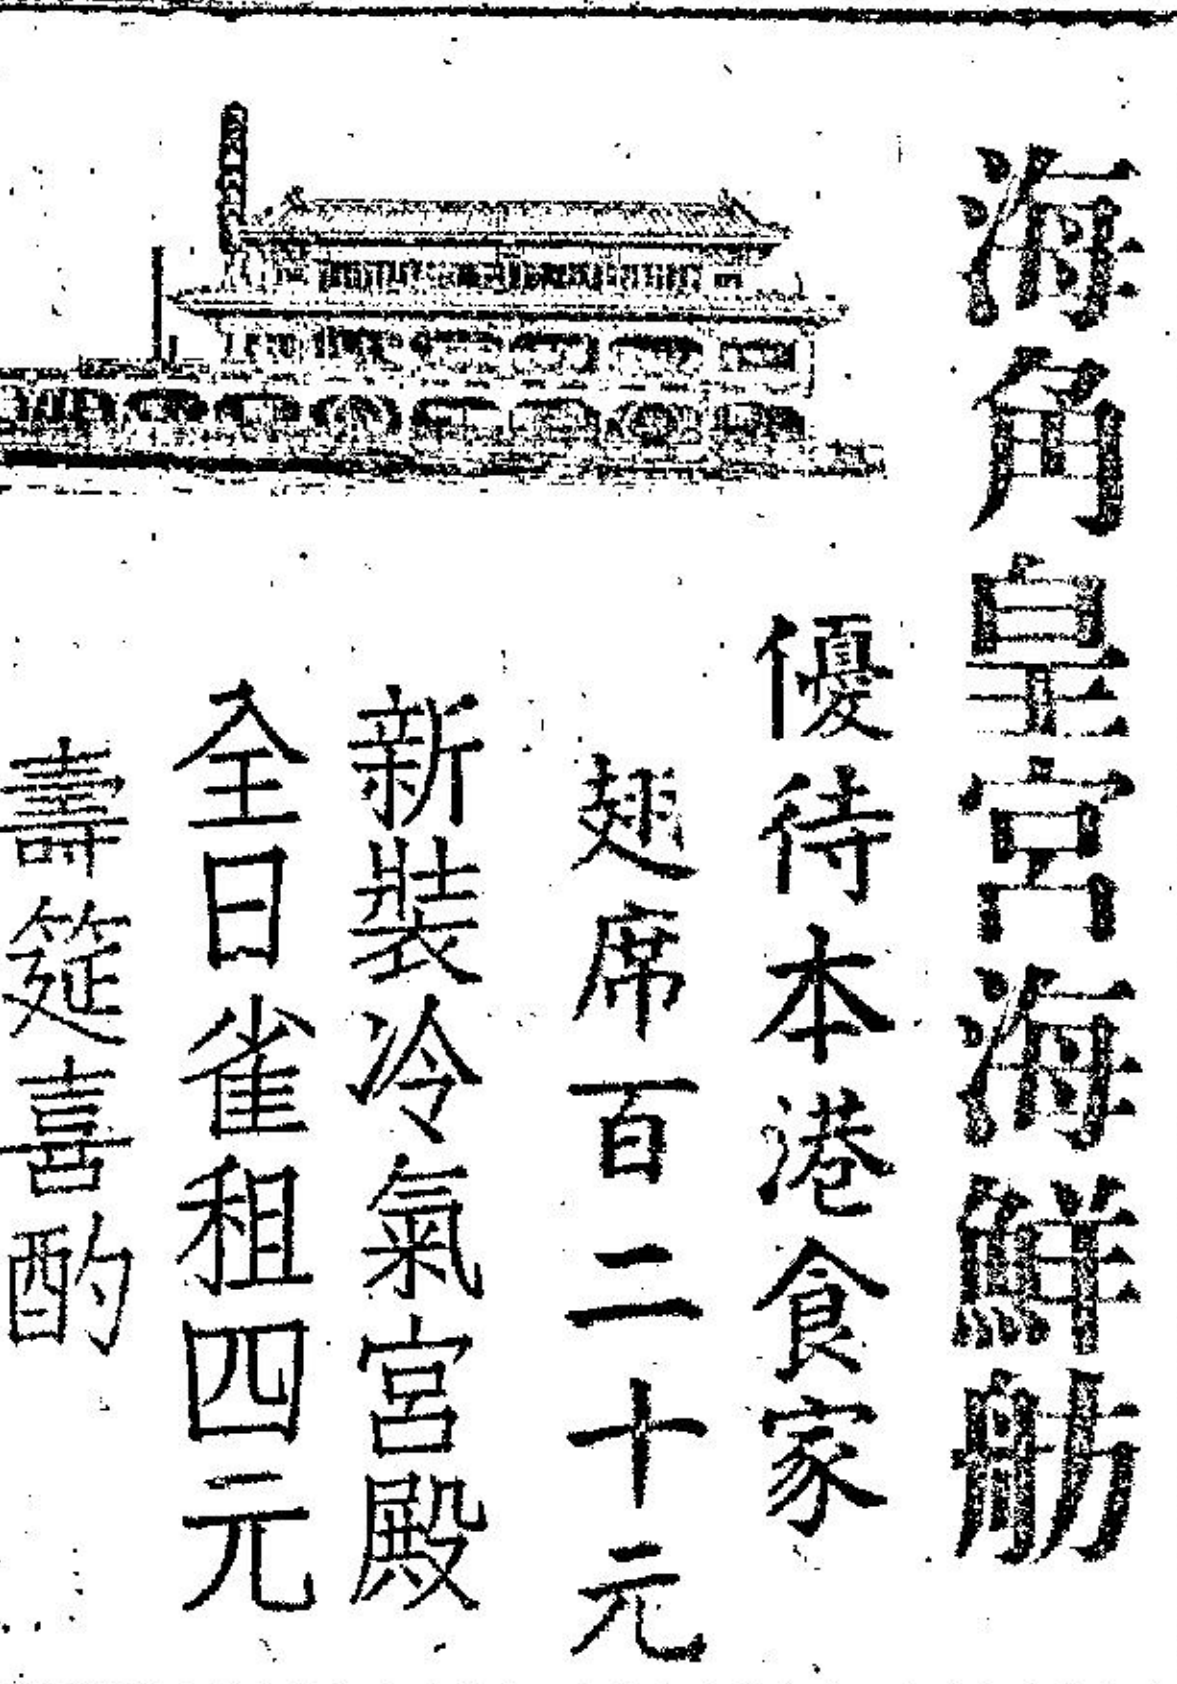 海角皇宮海鮮舫
優待本港食家
翅席百二十元
新裝冷氣宮殿
全日雀租四元
壽筵喜酌